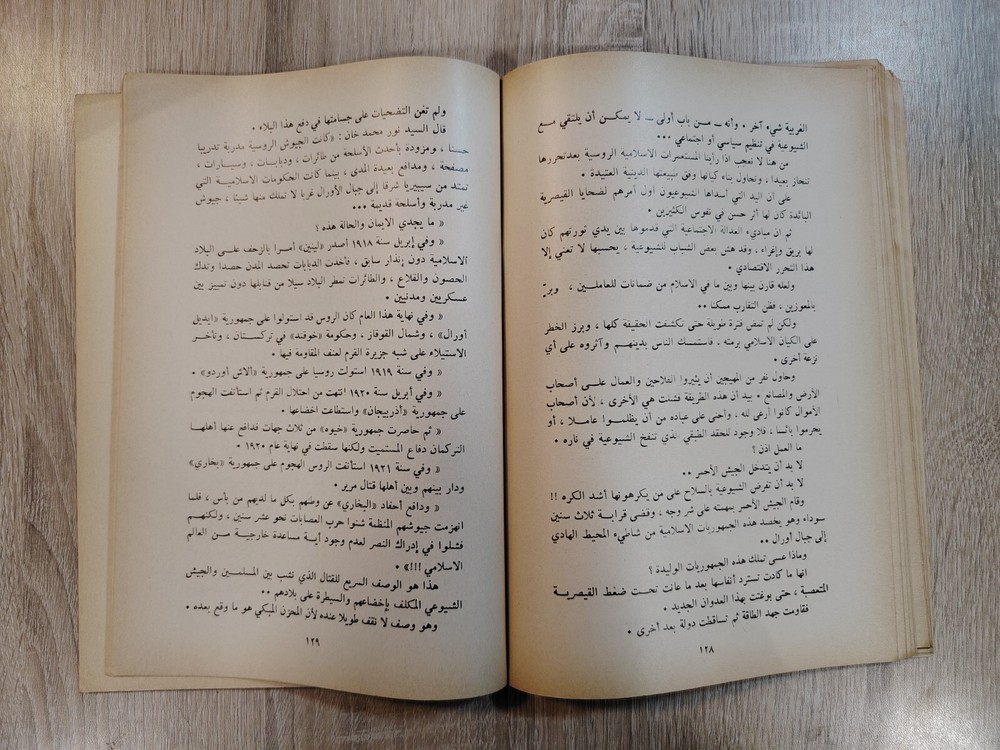 الغربية شيء آخر . وأنه ــ من باب أولى ــ لا يمكن أن يلتقي مع
الشيوعية في تنظيم سياسي أو اجتماعي ...
من هنا لا نعجب اذا رأينا المستعمرات الاسلامية الروسية بعد تحررها
تنحاز بعيدا ، وتحاول بناء كيانها وفق طبيعتها الدينية العتيدة .
على ان اليد التي أسداها الشيوعيون اول أمرهم لضحايا القيصرية
البائدة كان لها أثر حسن في نفوس الكثيرين .
ثم ان مباديء العدالة الاجتماعية التي قدموها بين يدي ثورتهم كان
لها بريق وإغراء ، وقد هش بعض الشباب للشيوعية ، يحسبها لا تعني إلا
هذا التحرر الاقتصادي .
ولعله قارن بينها وبين ما في الاسلام من ضمانات للعاملين ، وبرّ
بالمعوزين ، فظن التقارب ممكنا ..
ولكن لم تمض فترة طويلة حتى تكشفت الحقيقة كلها ، وبرز الخطر
على الكيان الاسلامي برمته ، فاستمسك الناس بدينهم وآثروه على أي
نزعة أخرى .
وحاول نفر من المهيجين أن يثيروا الفلاحين والعمال على أصحاب
الأرض والمصانع . بيد أن هذه الطريقة فشلت هي الأخرى ، لأن أصحاب
الأموال كانوا أرعى لله ، وأحنى على عباده من أن يظلموا عاملا ، أو
يحرموا بائسا ، فلا وجود للحقد الطبقي الذي تنفخ الشيوعية في ناره .
ما العمل اذن ؟
لا بد أن يتدخل الجيش الأحمر ..
لا بد أن تفرض الشيوعية بالسلاح على من يكرهونها أشد الكره !!
وقام الجيش الأحمر بمهمته على شر وجه ، وقضى قرابة ثلاث سنين
سوداء وهو يخضد هذه الجمهوريات الاسلامية من شاطيء المحيط الهادي
إلى جبال أورال ..
وماذا عسى تملك هذه الجمهوريات الوليدة ؟
انها ما كادت تسترد أنفاسها بعد ما عانت تحت ضغط القيصرية
المتعصبة ، حتى بوغتت بهذا العدوان الجديد .
فقاومت جهد الطاقة ثم تساقطت دولة بعد أخرى .
١٢٨
ولم تغن التضحيات على جسامتها في دفع هذا البلاء .
قال السيد نور محمد خان : «كانت الجيوش الروسية مدربة تدريبا
حسنا ، ومزودة بأحدث الأسلحة من طائرات ، ودبابات ، وسيارات ،
مصفحة ، ومدافع بعيدة المدى ، بينما كانت الحكومات الاسلامية التي
تمتد من سيبيريا شرقا إلى جبال الأورال غربا لا تملك منها شيئا ، جيوش
غير مدربة وأسلحة قديمة ...
« ما يجدي الايمان والحالة هذه ؟
« وفي إبريل سنة ١٩١٨ أصدر «لينين» أمرا بالزحف على البلاد
الاسلامية دون إنذار سابق ، فأخذت الدبابات تحصد المدن حصدا وتدك
الحصون والقلاع ، والطائرات تمطر البلاد سيلا من قنابلها دون تمييز بين
عسكريين ومدنيين .
« وفي نهاية هذا العام كان الروس قد استولوا على جمهورية «ايديل
أورال» ، وشمال القوقاز ، وحكومة «خوقند» في تركستان ، وتأخر
الاستيلاء على شبه جزيرة القرم لعنف المقاومة فيها .
« وفي سنة ١٩١٩ استولت روسيا على جمهورية «الاش أوردو» .
« وفي أبريل سنة ١٩٢٠ انتهت من احتلال القرم ثم استأنفت الهجوم
على جمهورية «أذربيجان» واستطاعت اخضاعها .
« ثم حاصرت جمهورية «خيوه» من ثلاث جهات فدافع عنها أهلها
التركمان دفاع المستميت ولكنها سقطت في نهاية عام ١٩٢٠ .
« وفي سنة ١٩٢١ استأنفت الروس الهجوم على جمهورية «بخارى»
ودار بينهم وبين أهلها قتال مرير .
« ودافع أحفاد «البخاري» عن وطنهم بكل ما لديهم من بأس ، فلما
انهزمت جيوشهم المنظمة شنوا حرب العصابات نحو عشر سنين ، ولكنهم
فشلوا في إدراك النصر لعدم وجود أية مساعدة خارجية من العالم
الاسلامي !!!» .
هذا هو الوصف السريع للقتال الذي نشب بين المسلمين والجيش
الشيوعي المكلف بإخضاعهم والسيطرة على بلادهم ..
وهو وصف لا نقف طويلا عنده لأن المحزن المبكي هو ما وقع بعده .
١٢٩